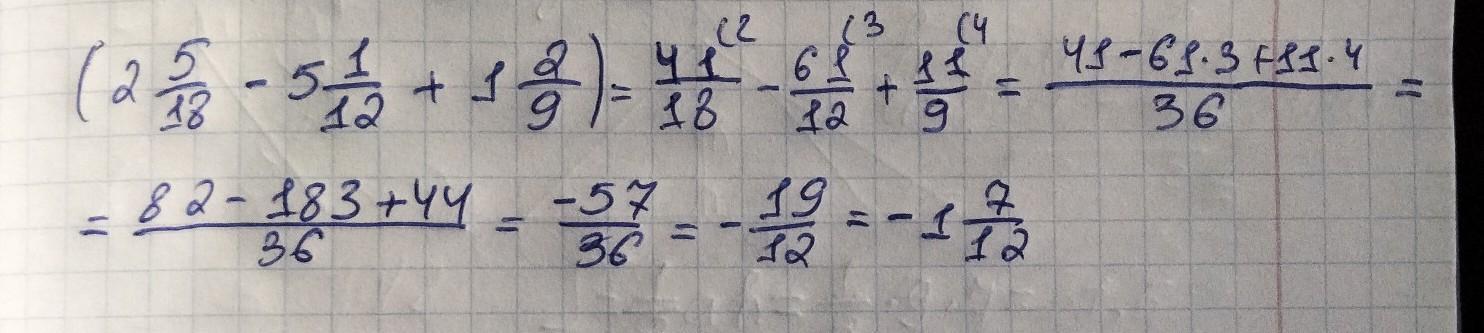 (2 5/18 - 5 1/12 + 1 2/9) = 41/18 (2 - 61/12 (3 + 11/9 (4 = 41-61·3+11·4/36 =
= 82-183+44/36 = -57/36 = -19/12 = -1 7/12